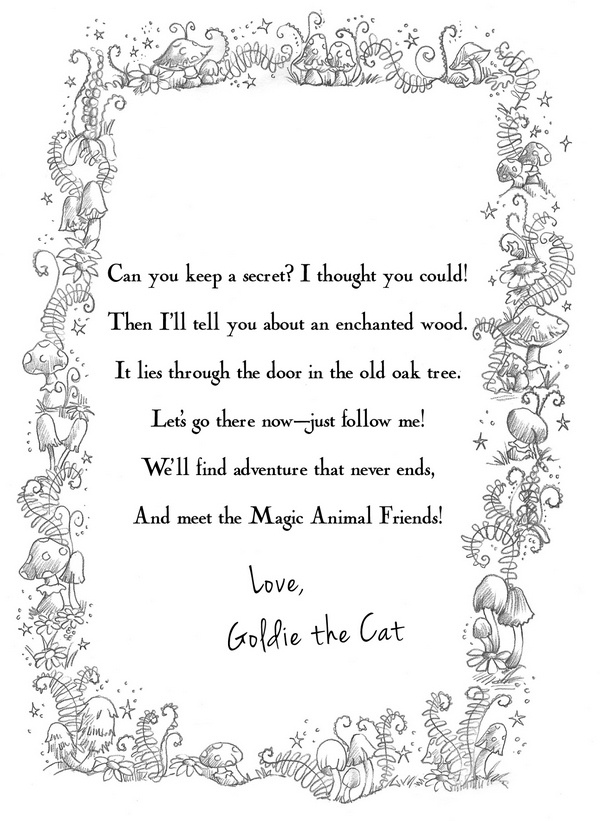 Can you keep a secret? I thought you could!
Then I'll tell you about an enchanted wood.
It lies through the door in the old oak tree.
Let's go there now—just follow me!
We'll find adventure that never ends,
And meet the Magic Animal Friends!
Love,
Goldie the Cat